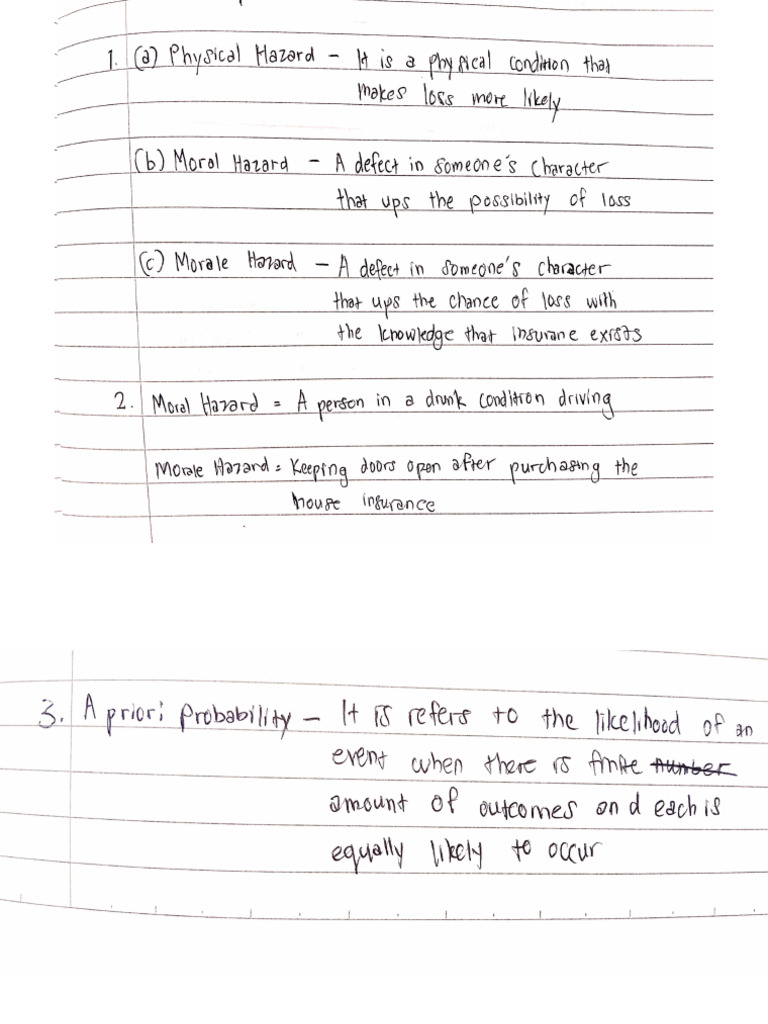 1. (a) Physical Hazard - It is a physical condition that
makes loss more likely
(b) Moral Hazard - A defect in someone's character
that ups the possibility of loss
(c) Morale Hazard - A defect in someone's character
that ups the chance of loss with
the knowledge that insurane exists
2. Moral Hazard = A person in a drunk condition driving
Morale Hazard = Keeping doors open after purchasing the
house insurance
3. A priori Probability - It is refers to the likelihood of an
event when there is finite number
amount of outcomes and each is
equally likely to occur